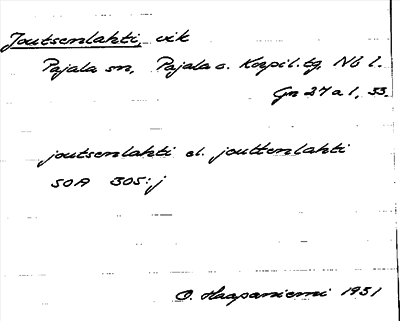 Joutsenlahti, vik
Pajala sn, Pajala o. Korpil. tg. Nb l.
Gn 27 a 1, 33.
joutsenlahti el. jouttenlahti
SOA 305:j
O. Haapaniemi 1931